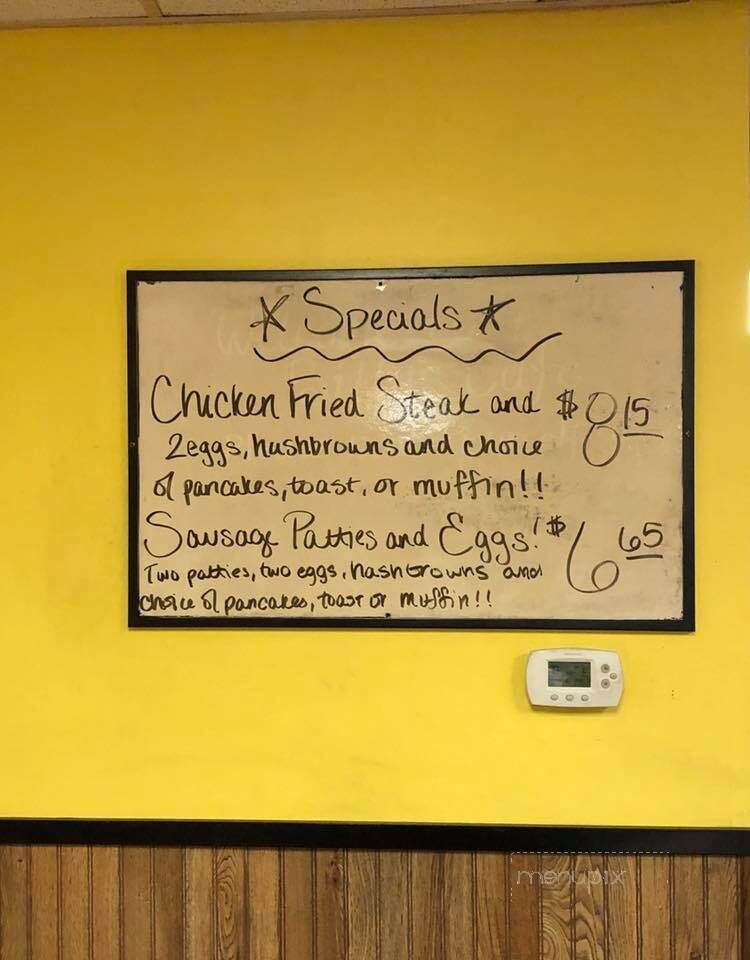 ☆ Specials ☆
Chicken Fried Steak and $8.15
2eggs, hashbrowns and choice
of pancakes, toast, or muffin!!
Sausage Patties and Eggs! $6.65
Two patties, two eggs, hashbrowns and
choice of pancakes, toast or muffin!!
menupix